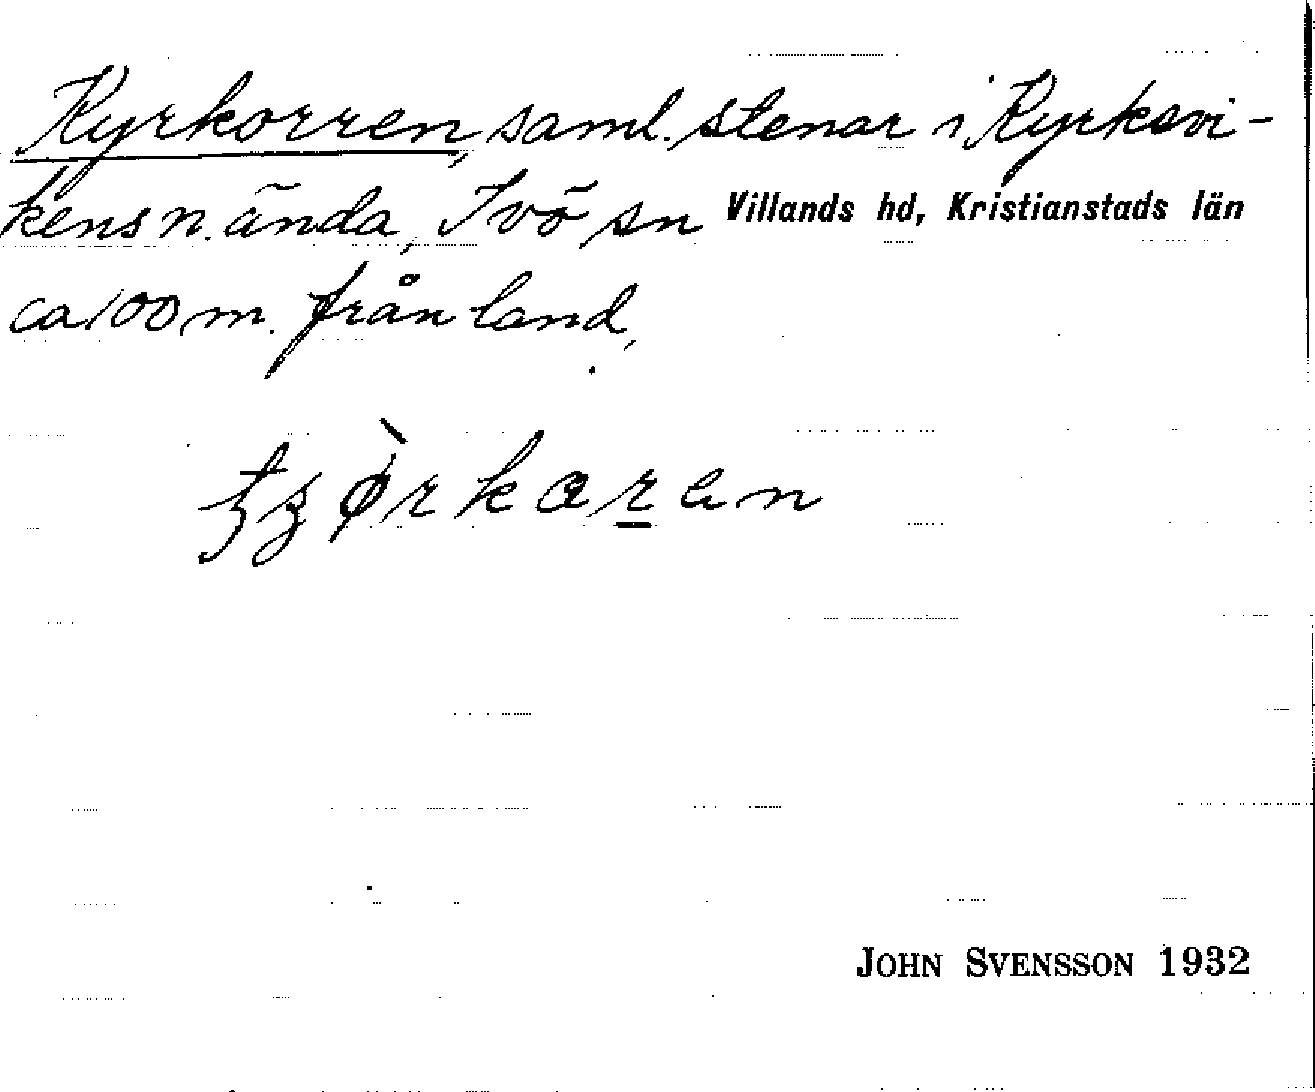 Kyrkorren, saml. stenar i Kyrksvi-
kens n. ända, Ivö sn Villands hd, Kristianstads län
ca 100 m. från land.
JOHN SVENSSON 1932